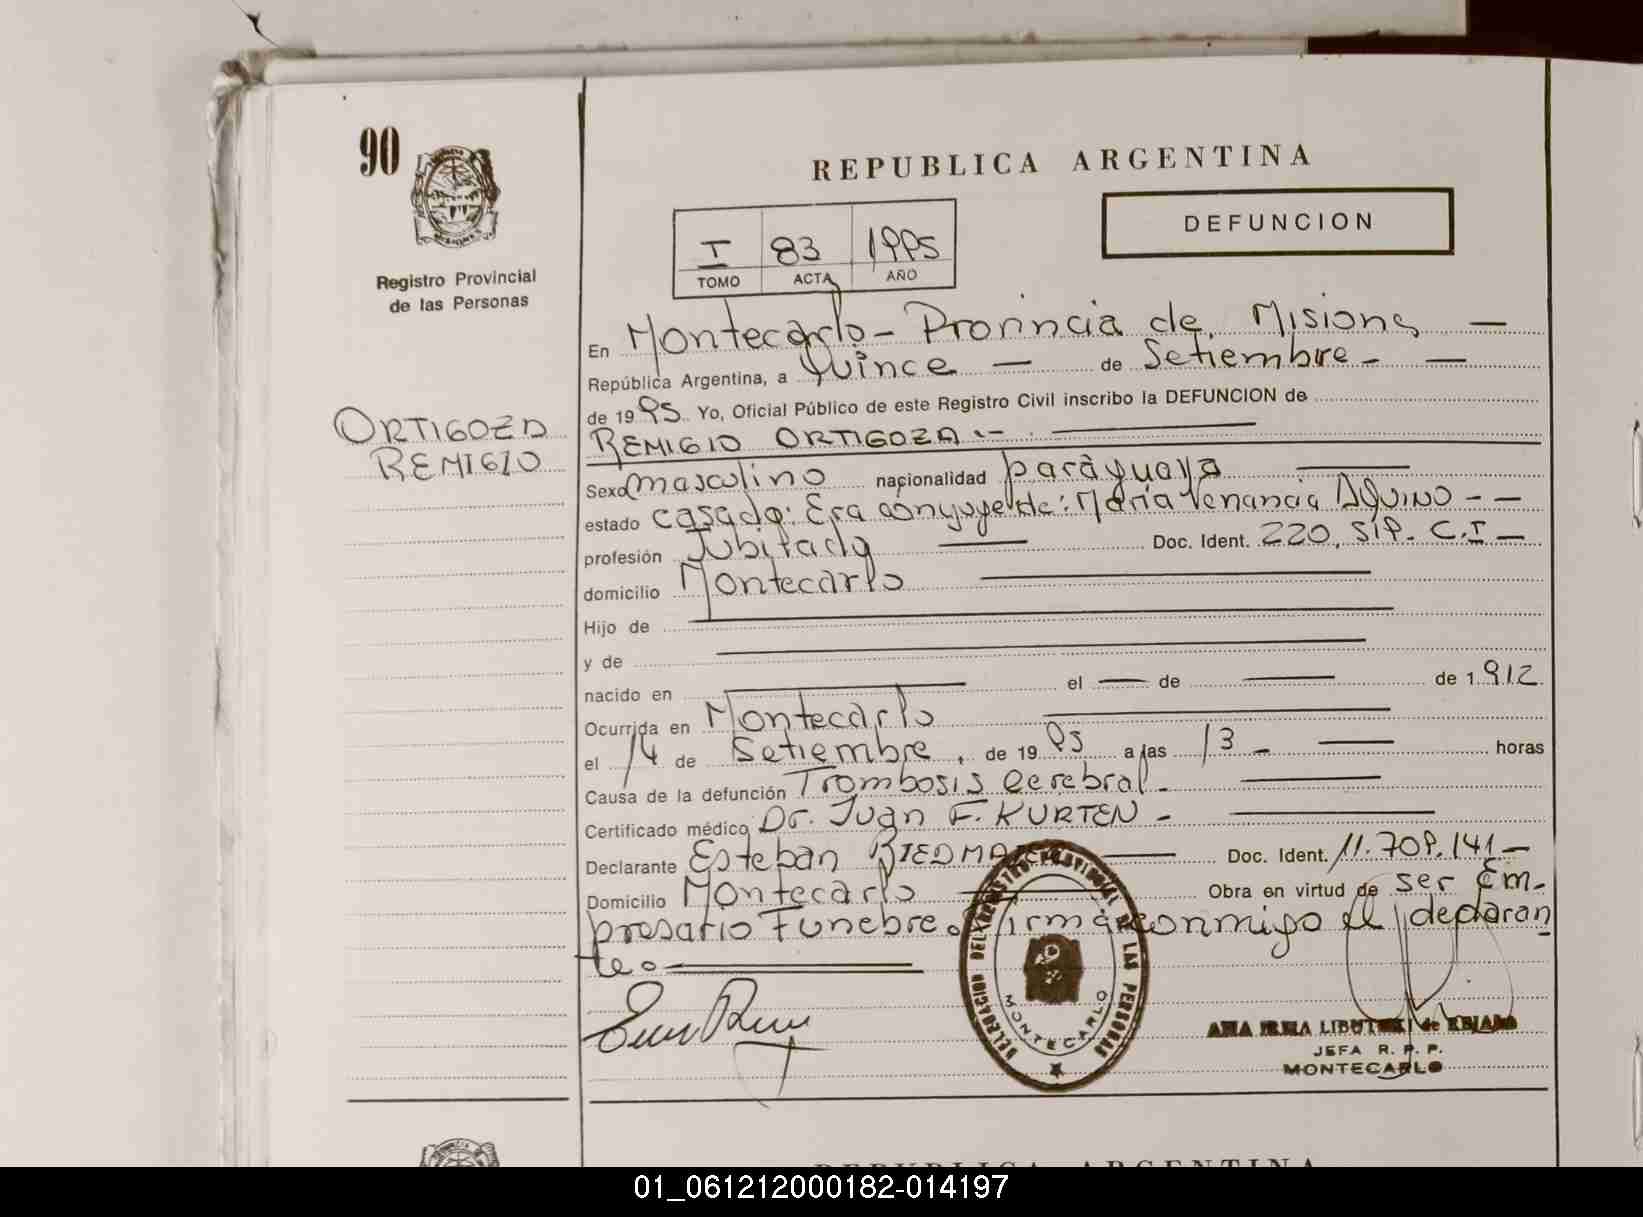 90
Registro Provincial
de las Personas
REPUBLICA ARGENTINA
DEFUNCION
I 83 1995
TOMO ACTA AÑO
En Montecarlo - Provincia de Misiones —
República Argentina, a Quince — de Setiembre - —
ORTIGOZA
REMIGIO
de 19 95. Yo, Oficial Público de este Registro Civil inscribo la DEFUNCION de
REMIGIO ORTIGOZA.-
Sexo masculino nacionalidad paraguaya
estado casado: Era cónyuge de: María Venancia AQUINO - -
profesión Jubilado — Doc. Ident. 220, S.I.P. C.I —
domicilio Montecarlo
Hijo de
y de
nacido en el — de — de 1.912
Ocurrida en Montecarlo
el 14 de Setiembre, de 19 95 a las 13 - — horas
Causa de la defunción Trombosis Cerebral -
Certificado médico Dr. Juan F. KURTEN -
Declarante Esteban — Doc. Ident. 11.709.141 —
Domicilio Montecarlo Obra en virtud de ser Em-
presario Funebre. Firma conmigo el declaran
te.
DELEGACION DEL REGISTRO PROVINCIAL DE LAS PERSONAS
MONTECARLO
ANA IRMA
JEFA R. P. P.
MONTECARLO
REPUBLICA ARGENTINA
01_061212000182-014197